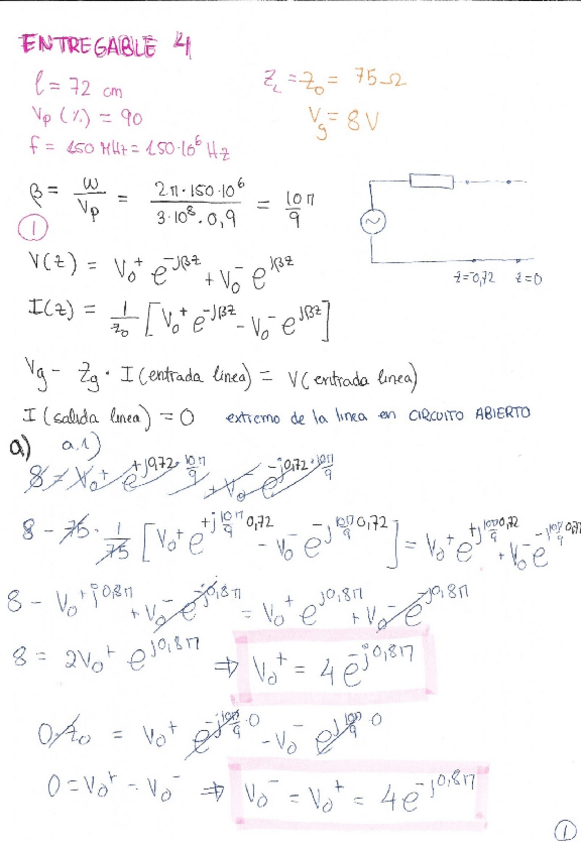 ENTREGABLE 4
l = 72 cm
Z_L = Z_0 = 75 Ω
Vp (%) = 90
Vg = 8V
f = 150 MHz = 150·10⁶ Hz
β = ω/Vp = 2π·150·10⁶ / 3·10⁸·0,9 = 10π/9
①
V(z) = V₀⁺ e^{-jβz} + V₀⁻ e^{jβz}
z=-0,72 z=0
I(z) = 1/Z₀ [V₀⁺ e^{-jβz} - V₀⁻ e^{jβz}]
Vg - Zg · I (entrada linea) = V (entrada linea)
I (salida linea) = 0 extremo de la linea en CIRCUITO ABIERTO
a) a.1)
8 = V₀⁺ e^{+j0,72·10π/9} + V₀⁻ e^{-j0,72·10π/9}
8 - 75 · 1/75 [V₀⁺ e^{+j10π/9 0,72} - V₀⁻ e^{-j10π/9 0,72}] = V₀⁺ e^{+j10π/9 0,72} + V₀⁻ e^{-j10π/9 0,72}
8 - V₀⁺ʲ⁰,⁸π + V₀⁻ e^{-j0,8π} = V₀⁺ e^{j0,8π} + V₀⁻ e^{-j0,8π}
8 = 2V₀⁺ e^{j0,8π} ⇒ V₀⁺ = 4 e^{-j0,8π}
0·Z₀ = V₀⁺ e^{-j10π/9·0} - V₀⁻ e^{j10π/9·0}
0 = V₀⁺ - V₀⁻ ⇒ V₀⁻ = V₀⁺ = 4e^{-j0,8π}
①